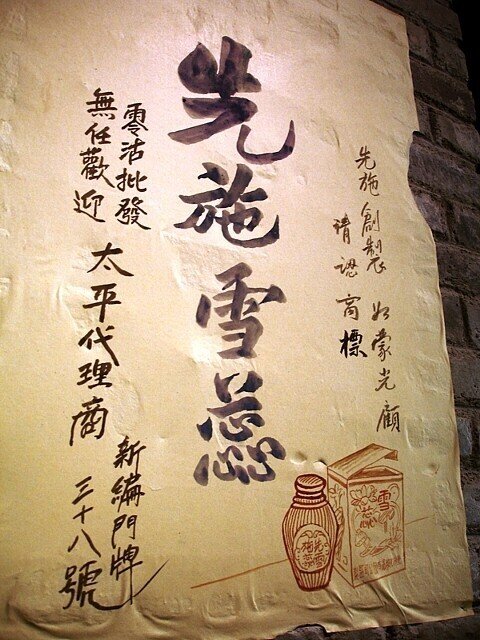 先施創製 如蒙光顧
請認商標
先施雪蕊
零沽批發
無任歡迎
太平代理商
新編門牌
三十八號
雪蕊
先施